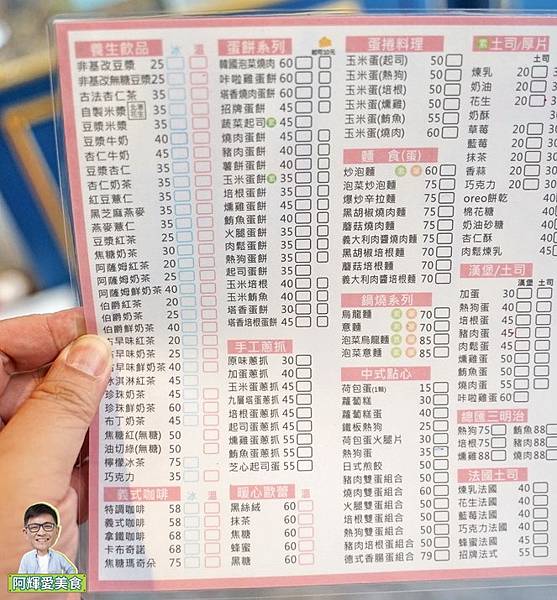 養生飲品 冰 溫
非基改豆漿 25
非基改無糖豆漿 25
古法杏仁茶 35
自製米漿 35
豆漿米漿 35
豆漿牛奶 40
杏仁牛奶 45
豆漿杏仁 35
杏仁奶茶 35
紅豆薏仁 35
黑芝麻燕麥 35
燕麥薏仁 35
豆漿紅茶 25
焦糖奶茶 30
阿薩姆紅茶 20
阿薩姆奶茶 25
阿薩姆鮮奶茶 40
伯爵紅茶 20
伯爵奶茶 25
伯爵鮮奶茶 40
古早味紅茶 20
古早味奶茶 25
古早味鮮奶茶 40
冰淇淋紅茶 45
珍珠奶茶 45
珍珠鮮奶茶 60
布丁奶茶 45
焦糖紅(無糖) 50
油切綠(無糖) 50
檸檬冰茶 75
巧克力 35
義式咖啡 冰 溫
特調咖啡 58
義式咖啡 58
拿鐵咖啡 68
卡布奇諾 68
焦糖瑪奇朵 75
蛋餅系列 起司10元
韓國泡菜燒肉 60
咔啦雞蛋餅 60
塔香燒肉蛋餅 60
招牌蛋餅 45
蔬菜起司 45
燒肉蛋餅 45
豬肉蛋餅 40
薯餅蛋餅 40
玉米蛋餅 35
培根蛋餅 45
燻雞蛋餅 45
鮪魚蛋餅 40
火腿蛋餅 35
肉鬆蛋餅 35
熱狗蛋餅 35
起司蛋餅 35
玉米培根 40
玉米鮪魚 40
塔香蛋餅 30
塔香培根蛋餅 45
手工蔥抓
原味蔥抓 30
加蛋蔥抓 40
玉米蛋蔥抓 45
九層塔蛋蔥抓 45
培根蛋蔥抓 50
起司蛋蔥抓 45
燻雞蛋蔥抓 55
鮪魚蛋蔥抓 55
芝心起司蛋 55
暖心歐蕾
黑絲絨 60
抹茶 60
焦糖 60
蜂蜜 60
黑糖 60
蛋捲料理
玉米蛋(起司) 50
玉米蛋(熱狗) 50
玉米蛋(培根) 50
玉米蛋(燻雞) 50
玉米蛋(鮪魚) 50
玉米蛋(燒肉) 60
麵 食(蛋)
炒泡麵 60
泡菜炒泡麵 75
爆炒辛拉麵 75
黑胡椒燒肉麵 75
蘑菇燒肉麵 75
義大利肉醬燒肉麵 75
黑胡椒培根麵 75
蘑菇培根麵 75
義大利肉醬培根 75
鍋燒系列
烏龍麵 70
意麵 70
泡菜烏龍麵 85
泡菜意麵 85
中式點心
荷包蛋(1顆) 15
蘿蔔糕 30
蘿蔔糕蛋 40
鐵板熱狗 25
荷包蛋火腿片 30
熱狗蛋 35
日式煎餃 50
豬肉雙蛋組合 50
燒肉雙蛋組合 60
火腿雙蛋組合 50
培根雙蛋組合 50
熱狗雙蛋組合 50
豬肉培根蛋組合 50
德式香腸蛋組合 79
素 土司/厚片
土司
煉乳 20 30
奶油 20 30
花生 20 30
奶酥 30
草莓 20 30
藍莓 20 30
抹茶 20 30
香蒜 20 30
巧克力 20 30
oreo餅乾 40
棉花糖 40
奶油砂糖 40
杏仁酥 40
肉鬆煉乳 45
漢堡/土司
漢堡 土司
加蛋 30
熱狗蛋 40
培根蛋 45
豬肉蛋 45
肉鬆蛋 40
燻雞蛋 50
鮪魚蛋 50
燒肉蛋 55
咔啦雞蛋 60
總匯三明治
熱狗 75 鮪魚 88
培根 75 豬肉 88
燻雞 88 燒肉 88
法國土司
煉乳法國 40
花生法國 40
藍莓法國 40
巧克力法國 40
蜂蜜法國 45
招牌法式 55
阿輝愛美食